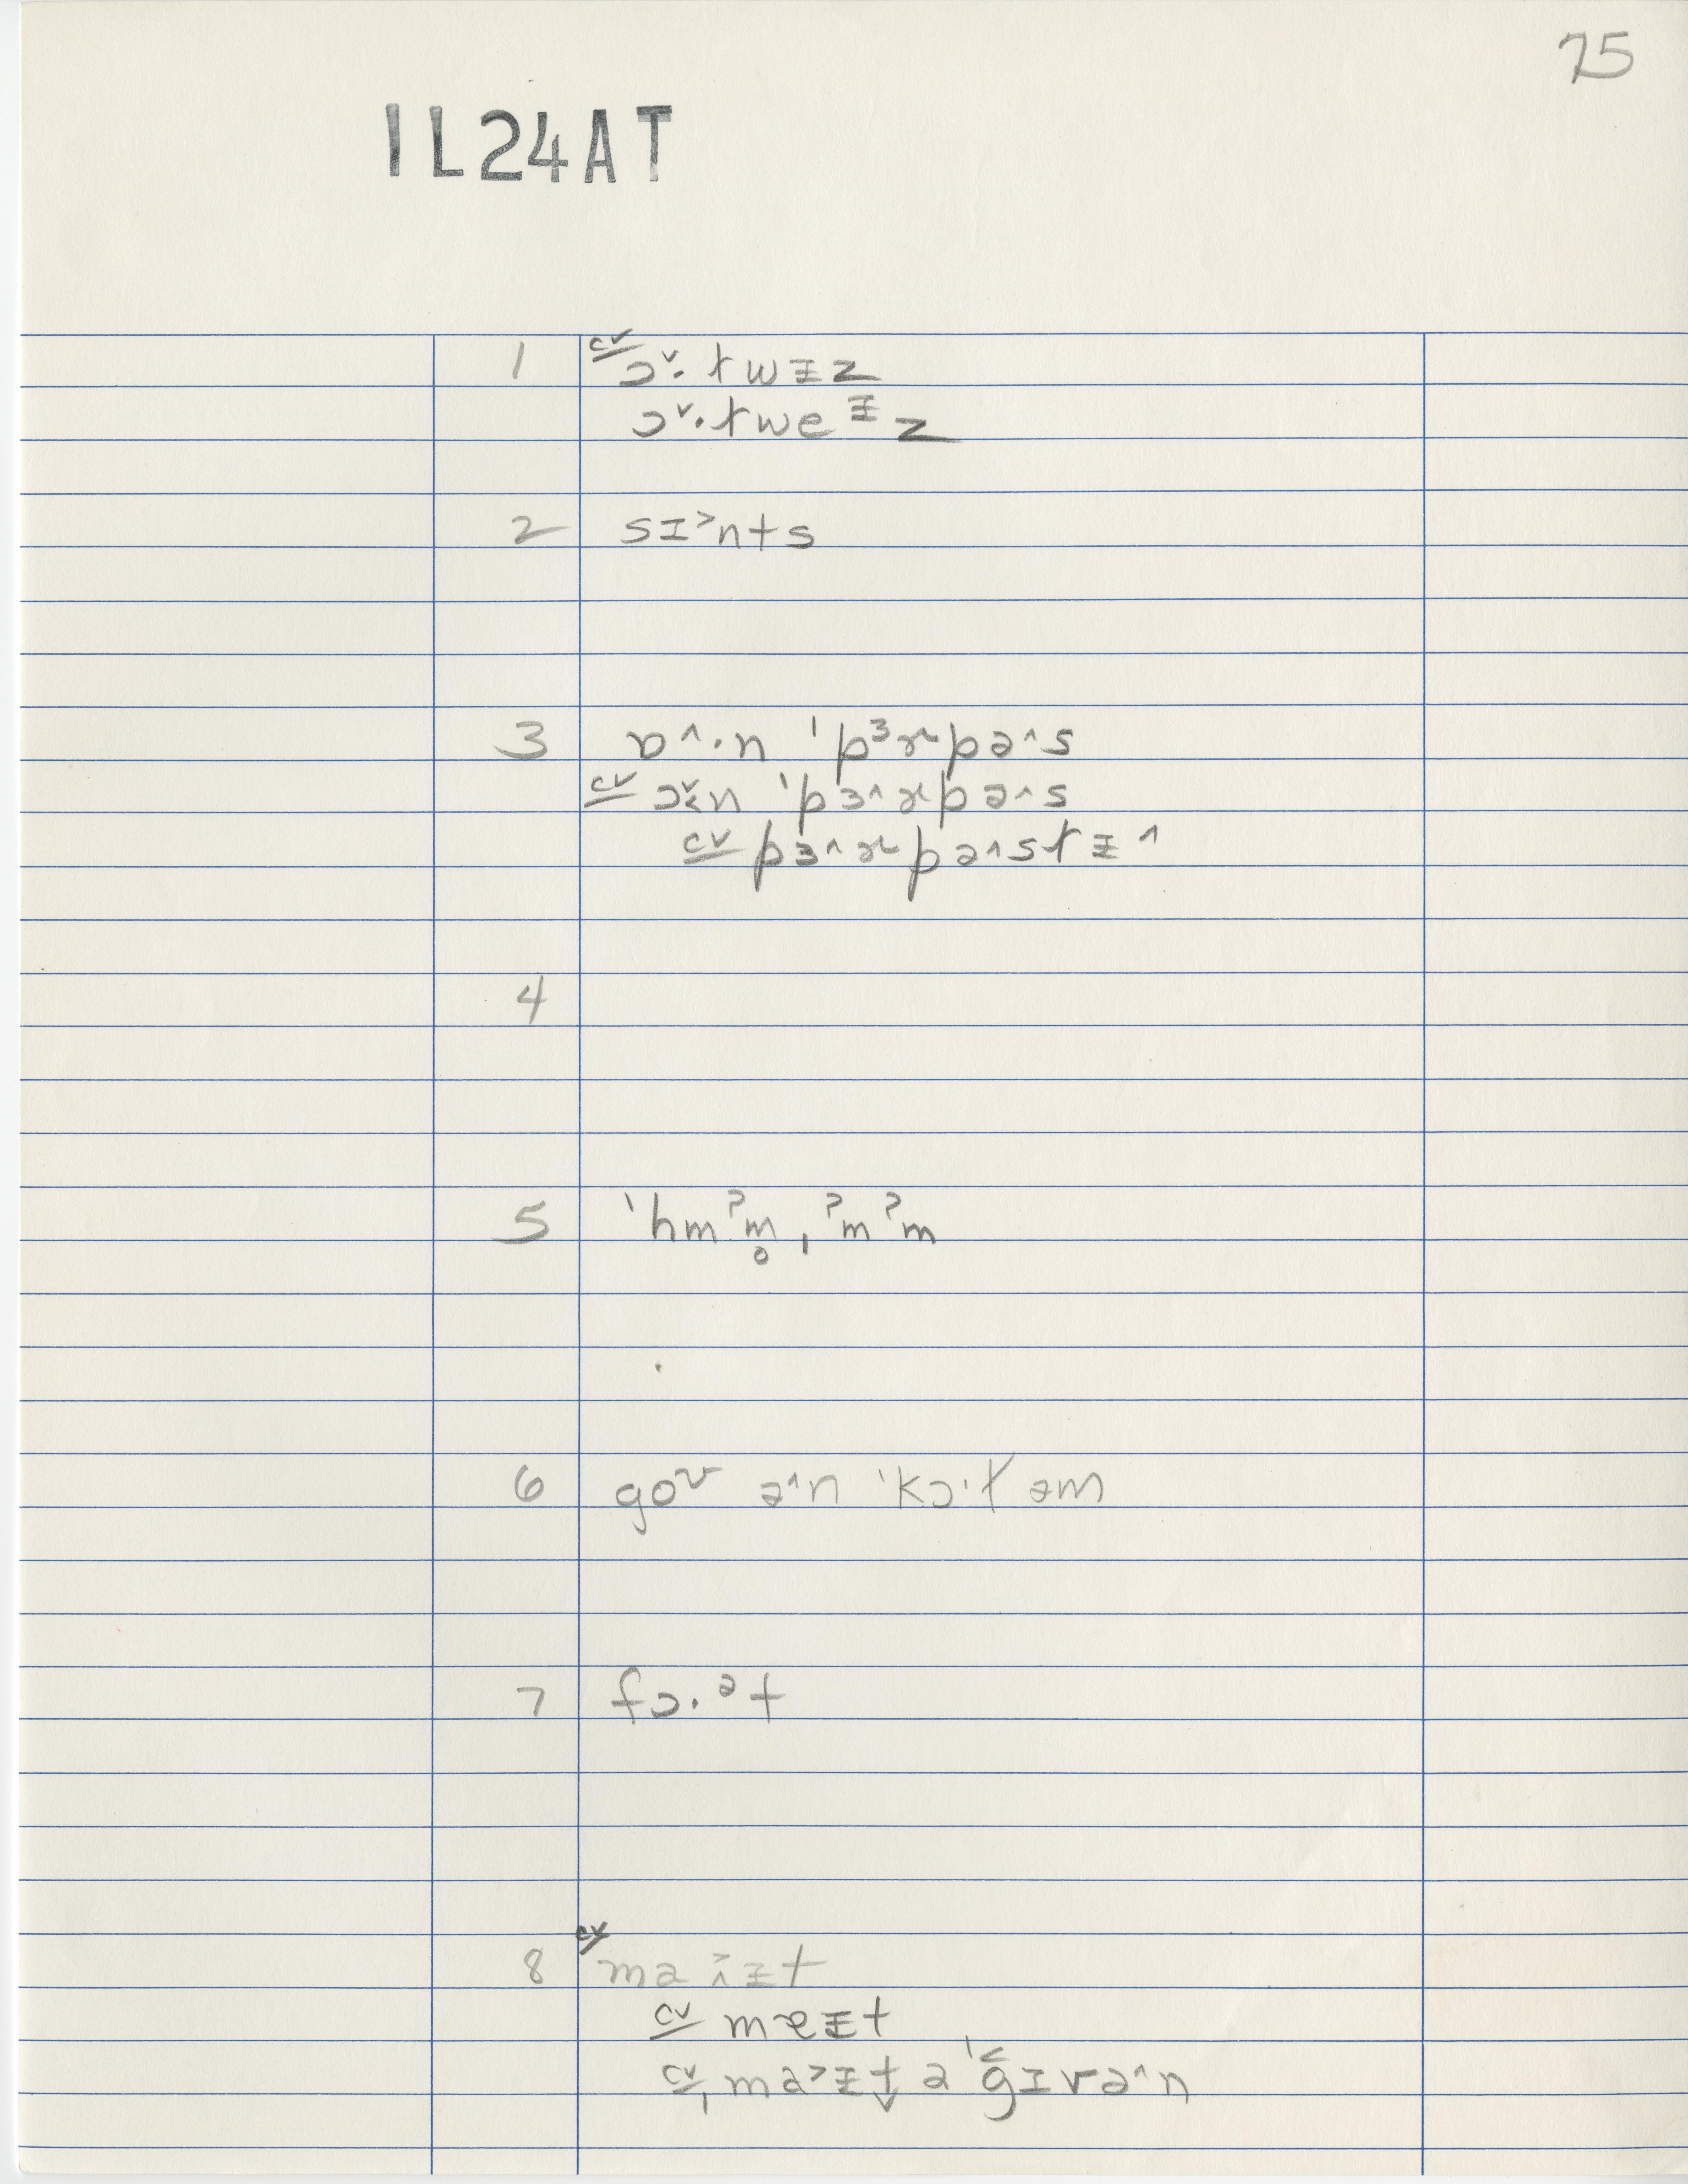 75
IL24AT
1 cv ɔ˅·twɪz
ɔ˅·tweᵻz
2 sɪ˃nts
3 ɒ^·n 'pɜɚpə^s
cv ɔ˅n 'pɜ^ɚpə^s
cv pɜ^ɚpə^stᵻ^
4
5 'hmˀm̥, ˀmˀm
6 goʊ ə^n 'kɔ·təm
7 fɔ·ᵊt
8 cv maᵻt
cv mɐᵻt
cv, ma˃ᵻt ə'gɪvə^n